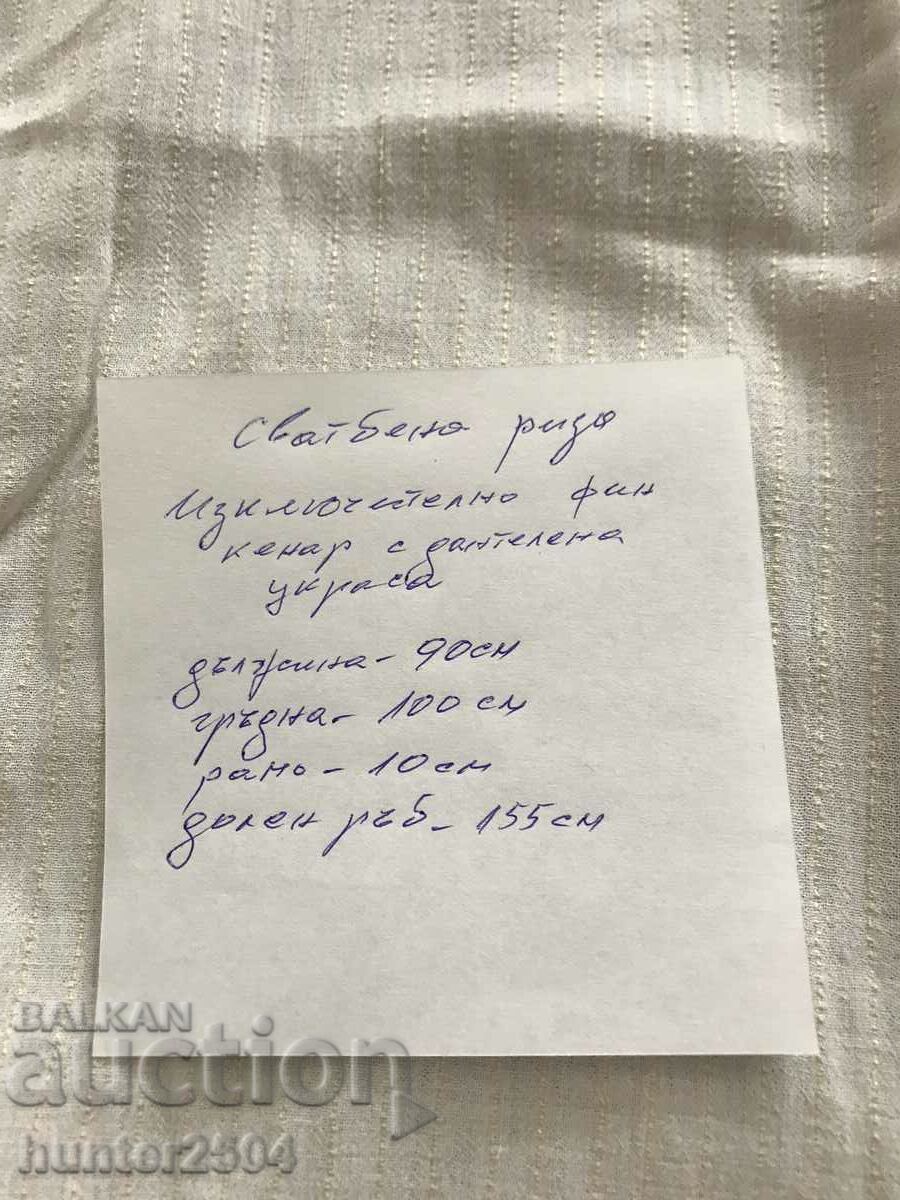 Сватбена риза
Изключително фин
кенар с дантелена
украса
дължина - 90см
гръдна - 100см
рамо - 10см
долен ръб - 155см
BALKAN
auction
hunter2504